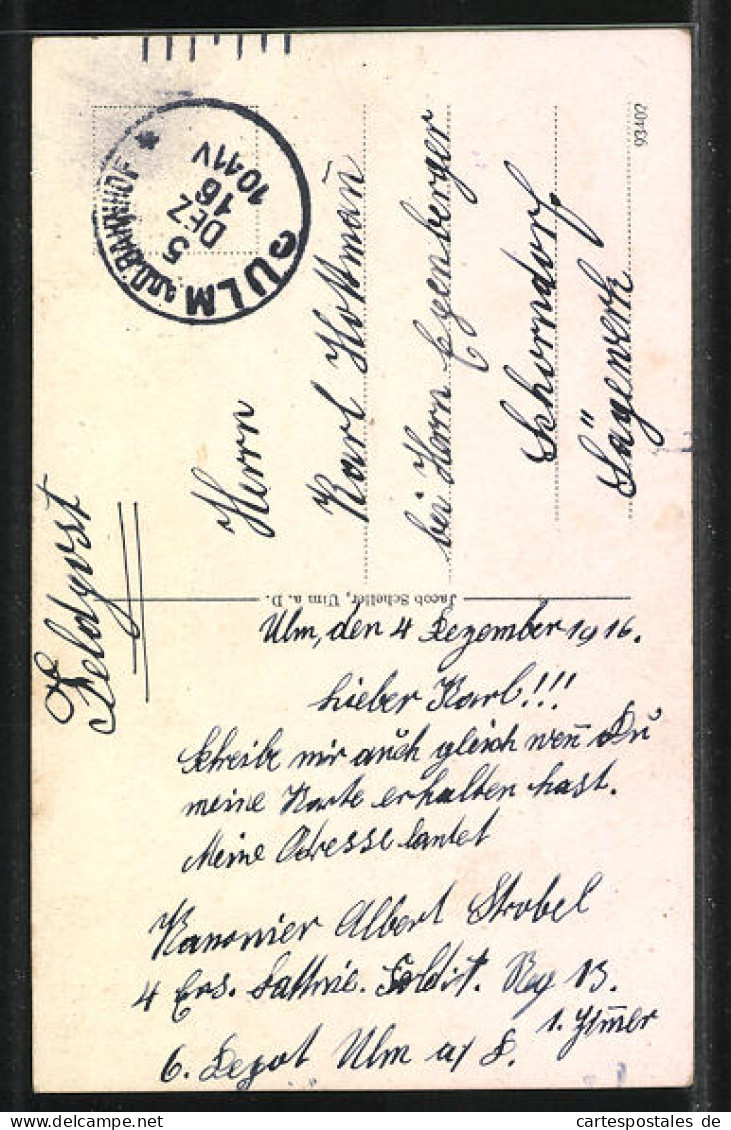 Feldpost
ULM a. D. BAHNHOF *
5
DEZ
16
10-11V
93402
Herrn
Karl Hottman̄
bei Herrn Egenberger
Schorndorf
Sägewerk
Jacob Scheffer, Ulm a. D.
Ulm, den 4 Dezember 1916.
Lieber Karl!!!
Schreibe mir auch gleich wen̄ Du
meine Karte erhalten hast.
Meine Adresse lautet
Kanonier Albert Strobel
4 Ers. Reg 13.
1.
6. Depot Ulm a/ D.
cartespostales.de